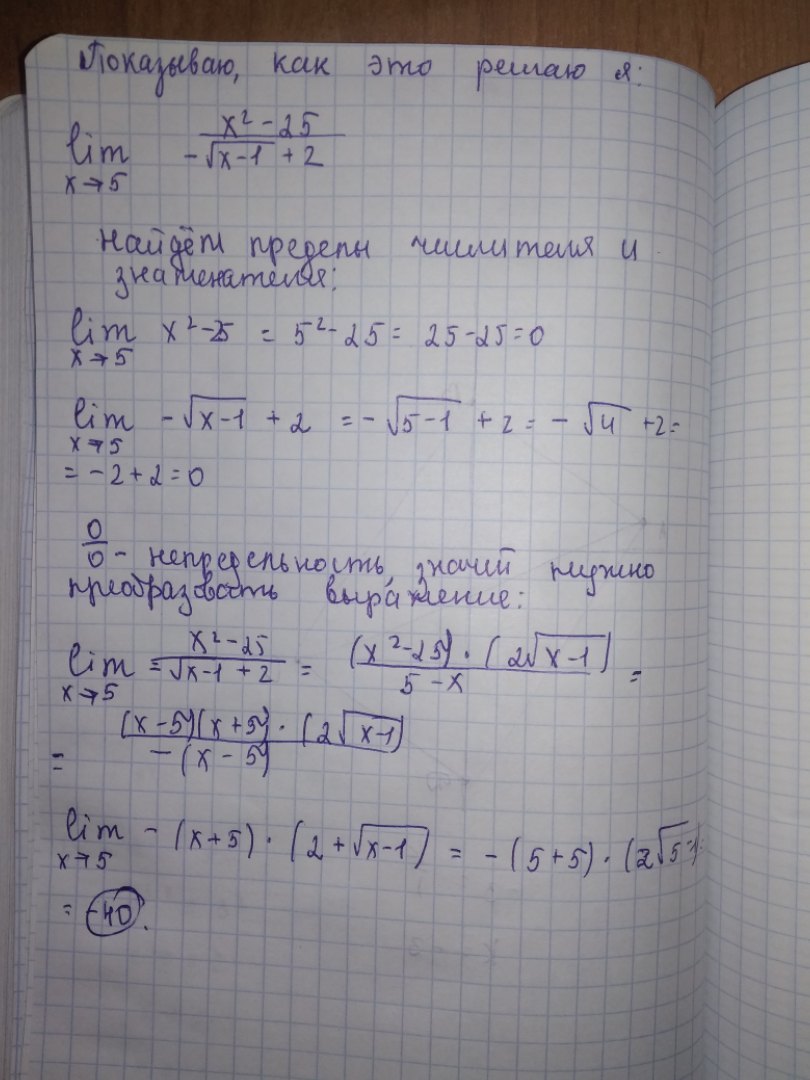 Показываю, как это решаю я:
lim x→5 (x² - 25)/(-√(x-1) + 2)
Найдём пределы числителя и
знаменателя:
lim x→5 x² - 25 = 5² - 25 = 25 - 25 = 0
lim x→5 -√(x-1) + 2 = -√(5-1) + 2 = -√4 + 2 =
= -2 + 2 = 0
0/0 - непредельность, значит нужно
преобразовать выражение:
lim x→5 = (x² - 25)/(√(x-1 + 2)) = ((x² - 25) · (2√(x-1)))/(5 - x) =
= ((x - 5)(x + 5) · (2√(x-1)))/(-(x - 5))
lim x→5 -(x + 5) · (2 + √(x-1)) = -(5 + 5) · (2√(5-1)) =
= -40.